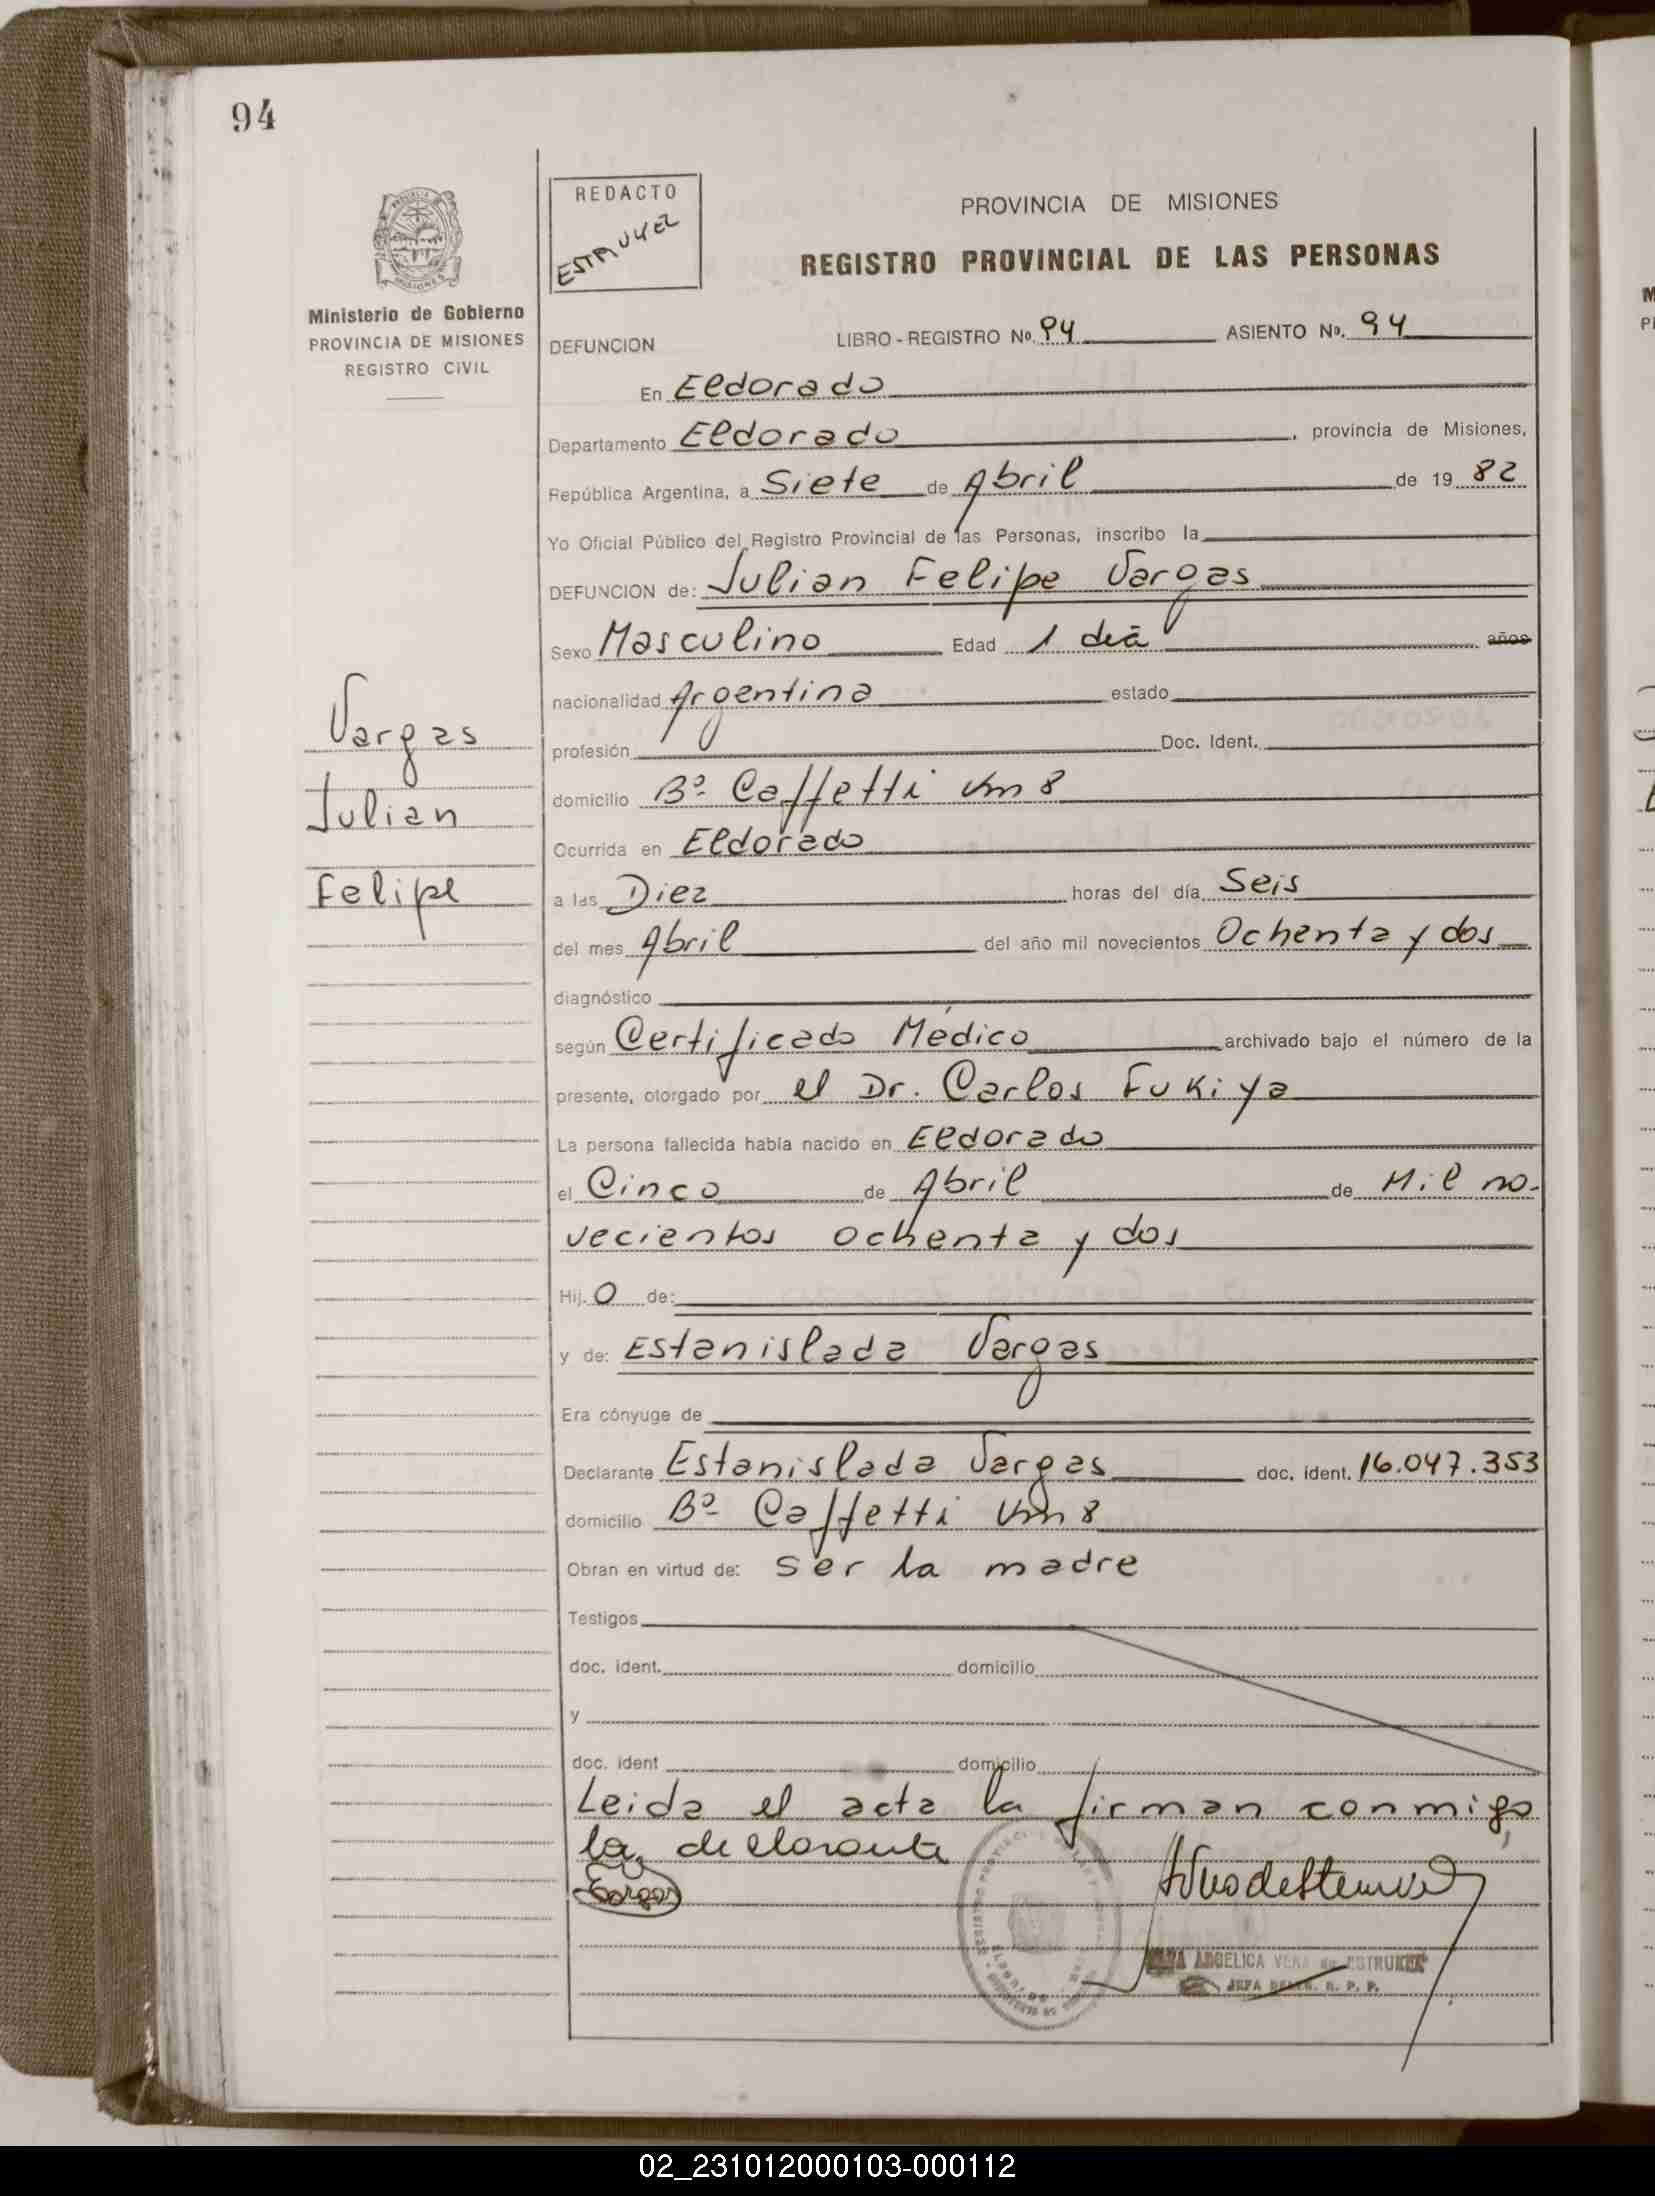 94
REDACTO
Ministerio de Gobierno
PROVINCIA DE MISIONES
REGISTRO CIVIL
PROVINCIA DE MISIONES
REGISTRO PROVINCIAL DE LAS PERSONAS
DEFUNCION LIBRO - REGISTRO Nº. 94 ASIENTO Nº. 94
En Eldorado
Departamento Eldorado, provincia de Misiones,
República Argentina, a Siete de Abril de 19 82
Yo Oficial Público del Registro Provincial de las Personas, inscribo la
DEFUNCION de: Julian Felipe Vargas
Sexo Masculino Edad 1 diá años
nacionalidad Argentina estado
profesión Doc. Ident.
domicilio Bº Caffetti Km 8
Ocurrida en Eldorado
a las Diez horas del día Seis
del mes Abril del año mil novecientos Ochenta y dos
diagnóstico
según Certificado Médico archivado bajo el número de la
presente, otorgado por el Dr. Carlos Fukiya
La persona fallecida había nacido en Eldorado
el Cinco de Abril de Mil no-
vecientos ochenta y dos
Hij. O de:
y de: Estanislada Vargas
Era cónyuge de
Declarante Estanislada Vargas doc. ident. 16.047.353
domicilio Bº Caffetti Km 8
Obran en virtud de: ser la madre
Testigos
doc. ident. domicilio
y
doc. ident domicilio
Leida el acta la firman conmigo
la declarante
Vargas
Julian
Felipe
ANGELICA VERA de ESTRUKEL
JEFA R. P. P.
02_231012000103-000112